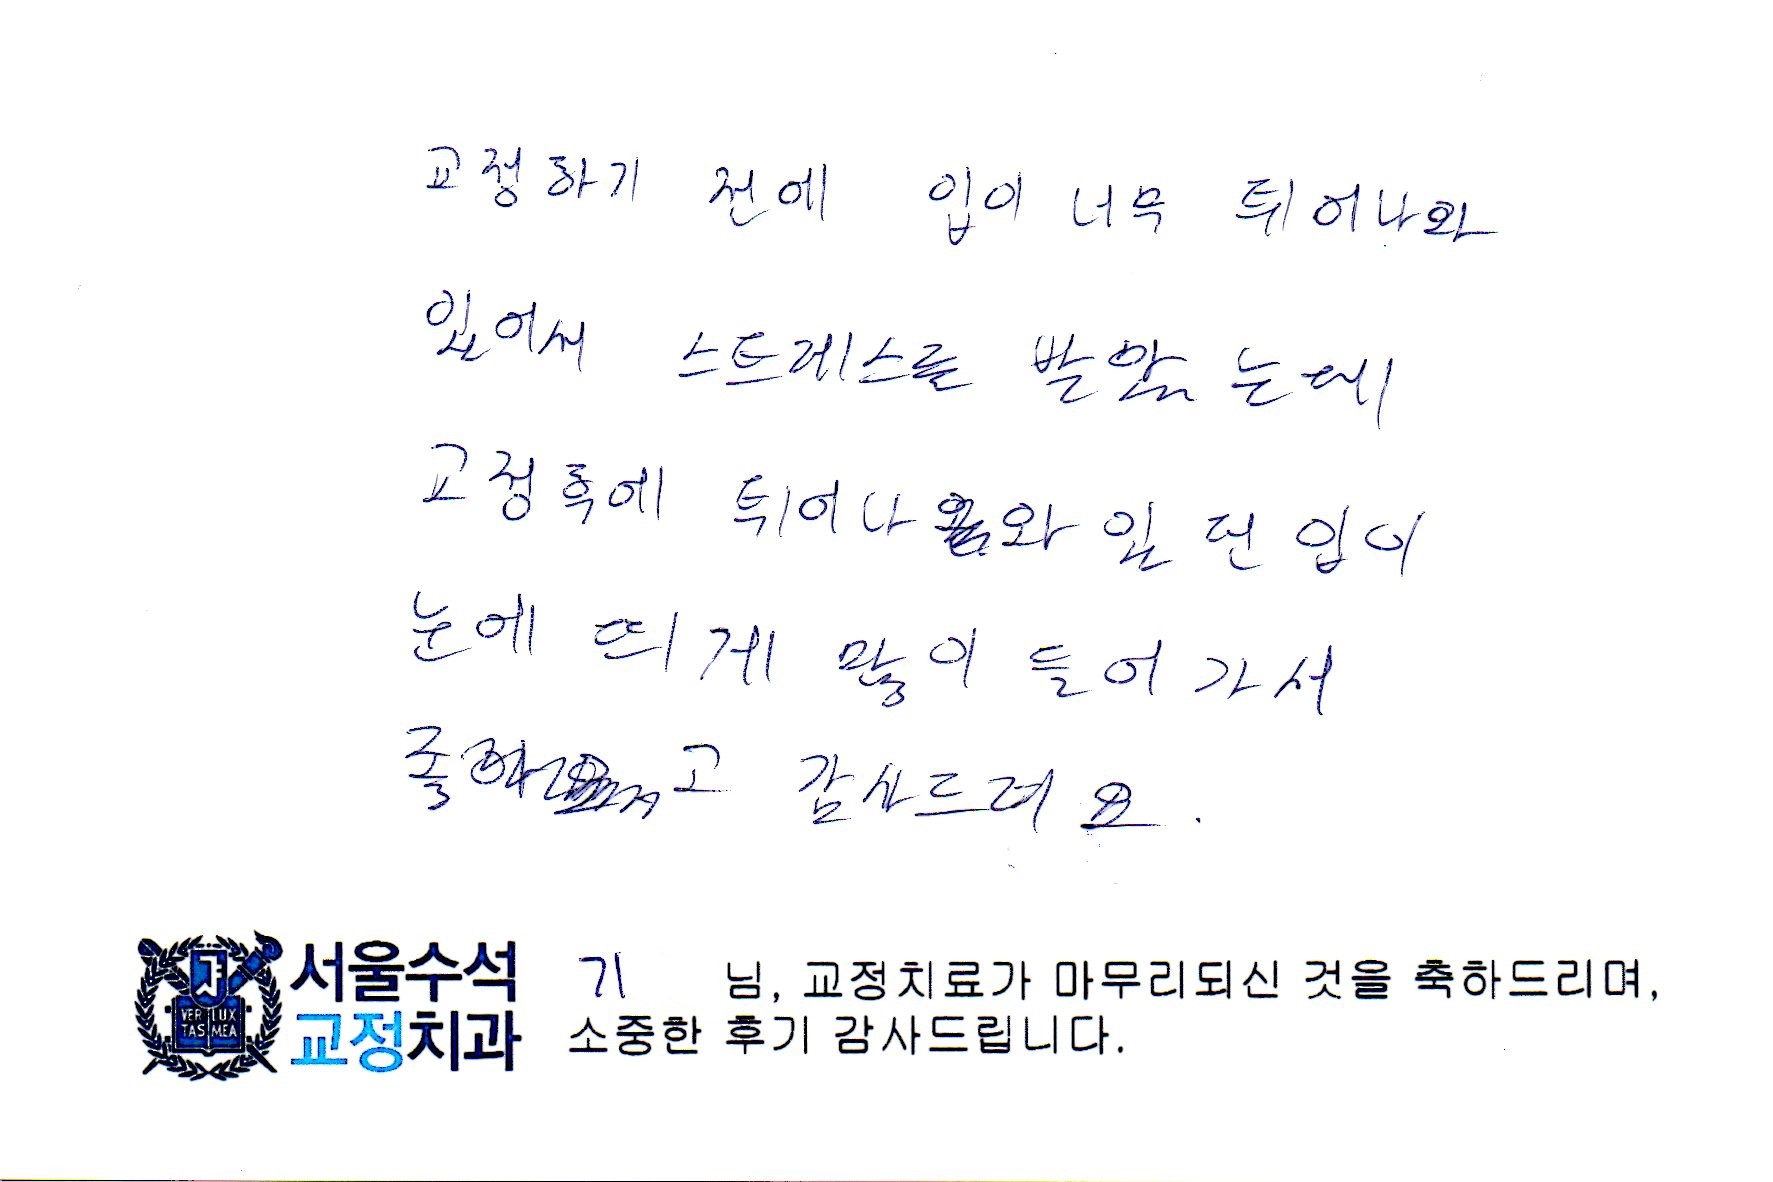 교정하기 전에 입이 너무 튀어나와
있어서 스트레스를 받았는데
교정후에 튀어나와있던 입이
눈에 띄게 많이 들어가서
좋고 감사드려요.
서울수석
교정치과
VERI LUX
TAS MEA
기 님, 교정치료가 마무리되신 것을 축하드리며,
소중한 후기 감사드립니다.